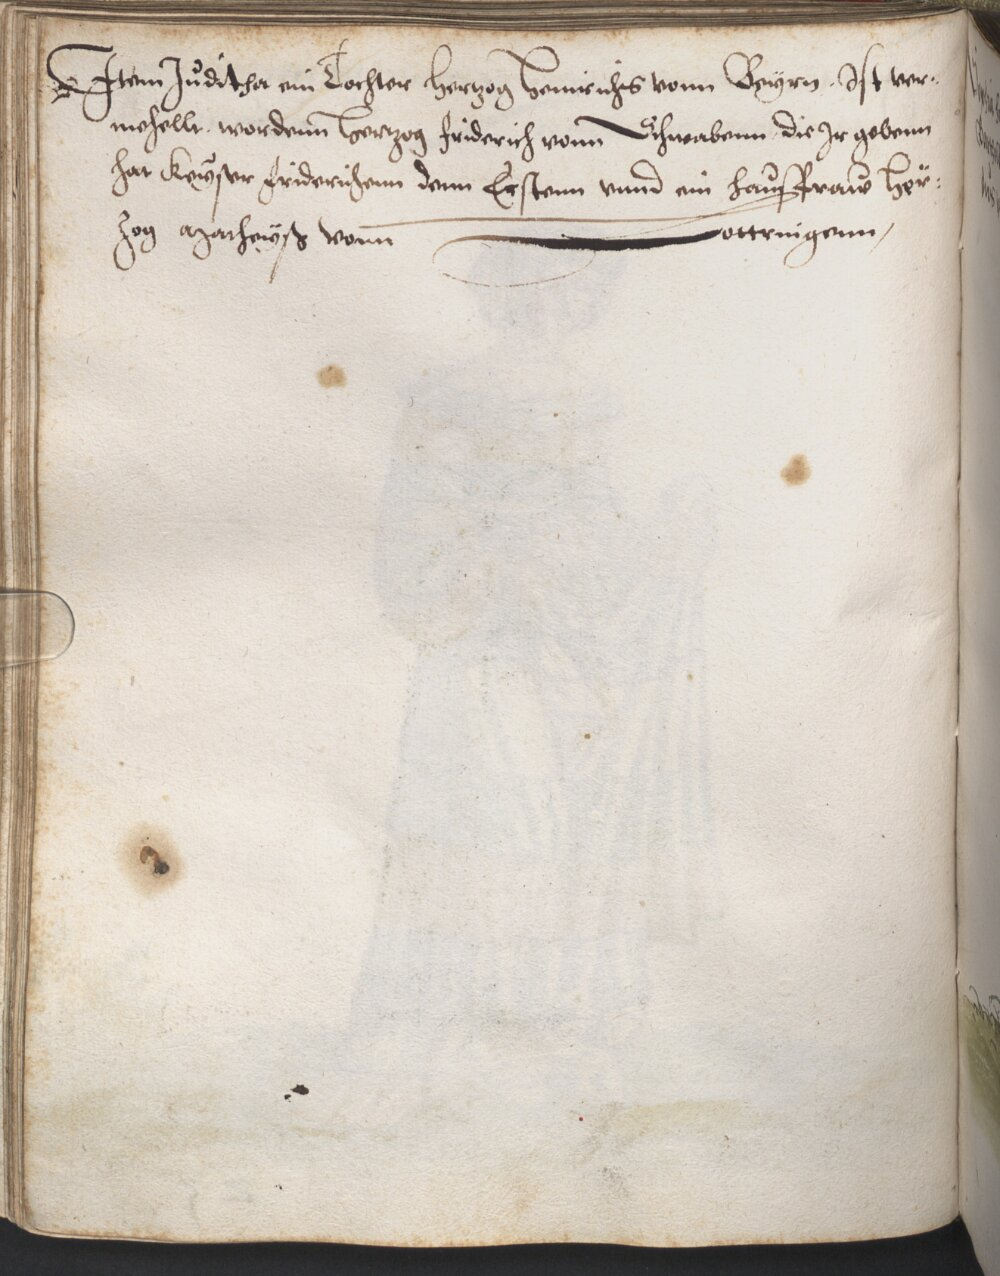 Item Juditha ein Tochter Hertzog Heinrichs vonn Beyrn. Ist ver-
mehellt. wordenn Hertzog friderich vonn Schwabenn. die Jr gebenn
hat Keyser friderichenn denn Erstenn vnnd ein haussfraw Her-
zog Matheyß vonn Lottringenn